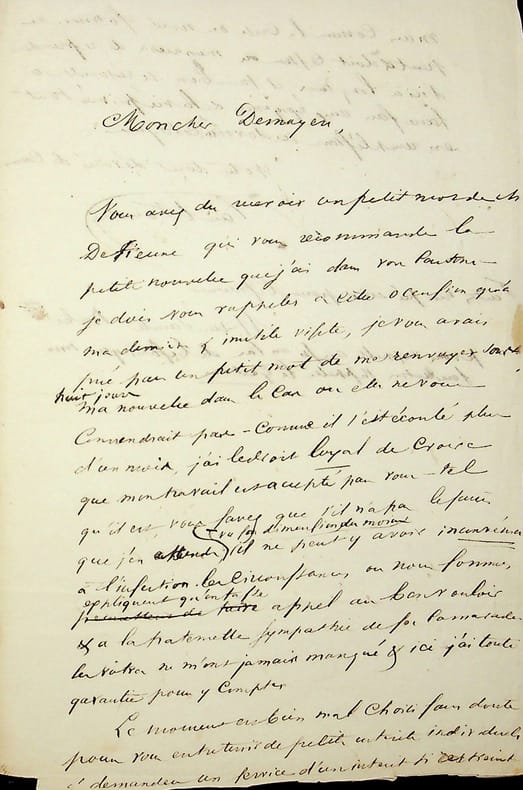 Mon cher Demayen,
Vous avez du recevoir un petit mot de
qui vous recommande la
petite nouvelle que j'ai dans vos
je dois vous rappeler à cette occasion qu'à
ma dernière & inutile visite, je vous avais
prié par un petit mot de me renvoyer sous
huit jours
ma nouvelle dans le cas où elle ne vous
conviendrait pas – Comme il s'est écoulé plus
d'un mois, j'ai le droit loyal de croire
que mon travail est accepté par vous – tel
qu'il est, vous savez que s'il n'a pas le succès
vu sa dimension du moins
que j'en attends, il ne peut y avoir
à l'insertion. Les circonstances où nous sommes
expliquent qu'on fasse
appel au bon vouloir
& a la fraternelle sympathie de ses camarades
les votres ne m'ont jamais manqué & ici j'ai toute
garantie pour y compter
Le moment est bien mal choisi sans doute
pour vous entretenir de petits intérêts individuels
& demander un service d'un intérêt si restreint